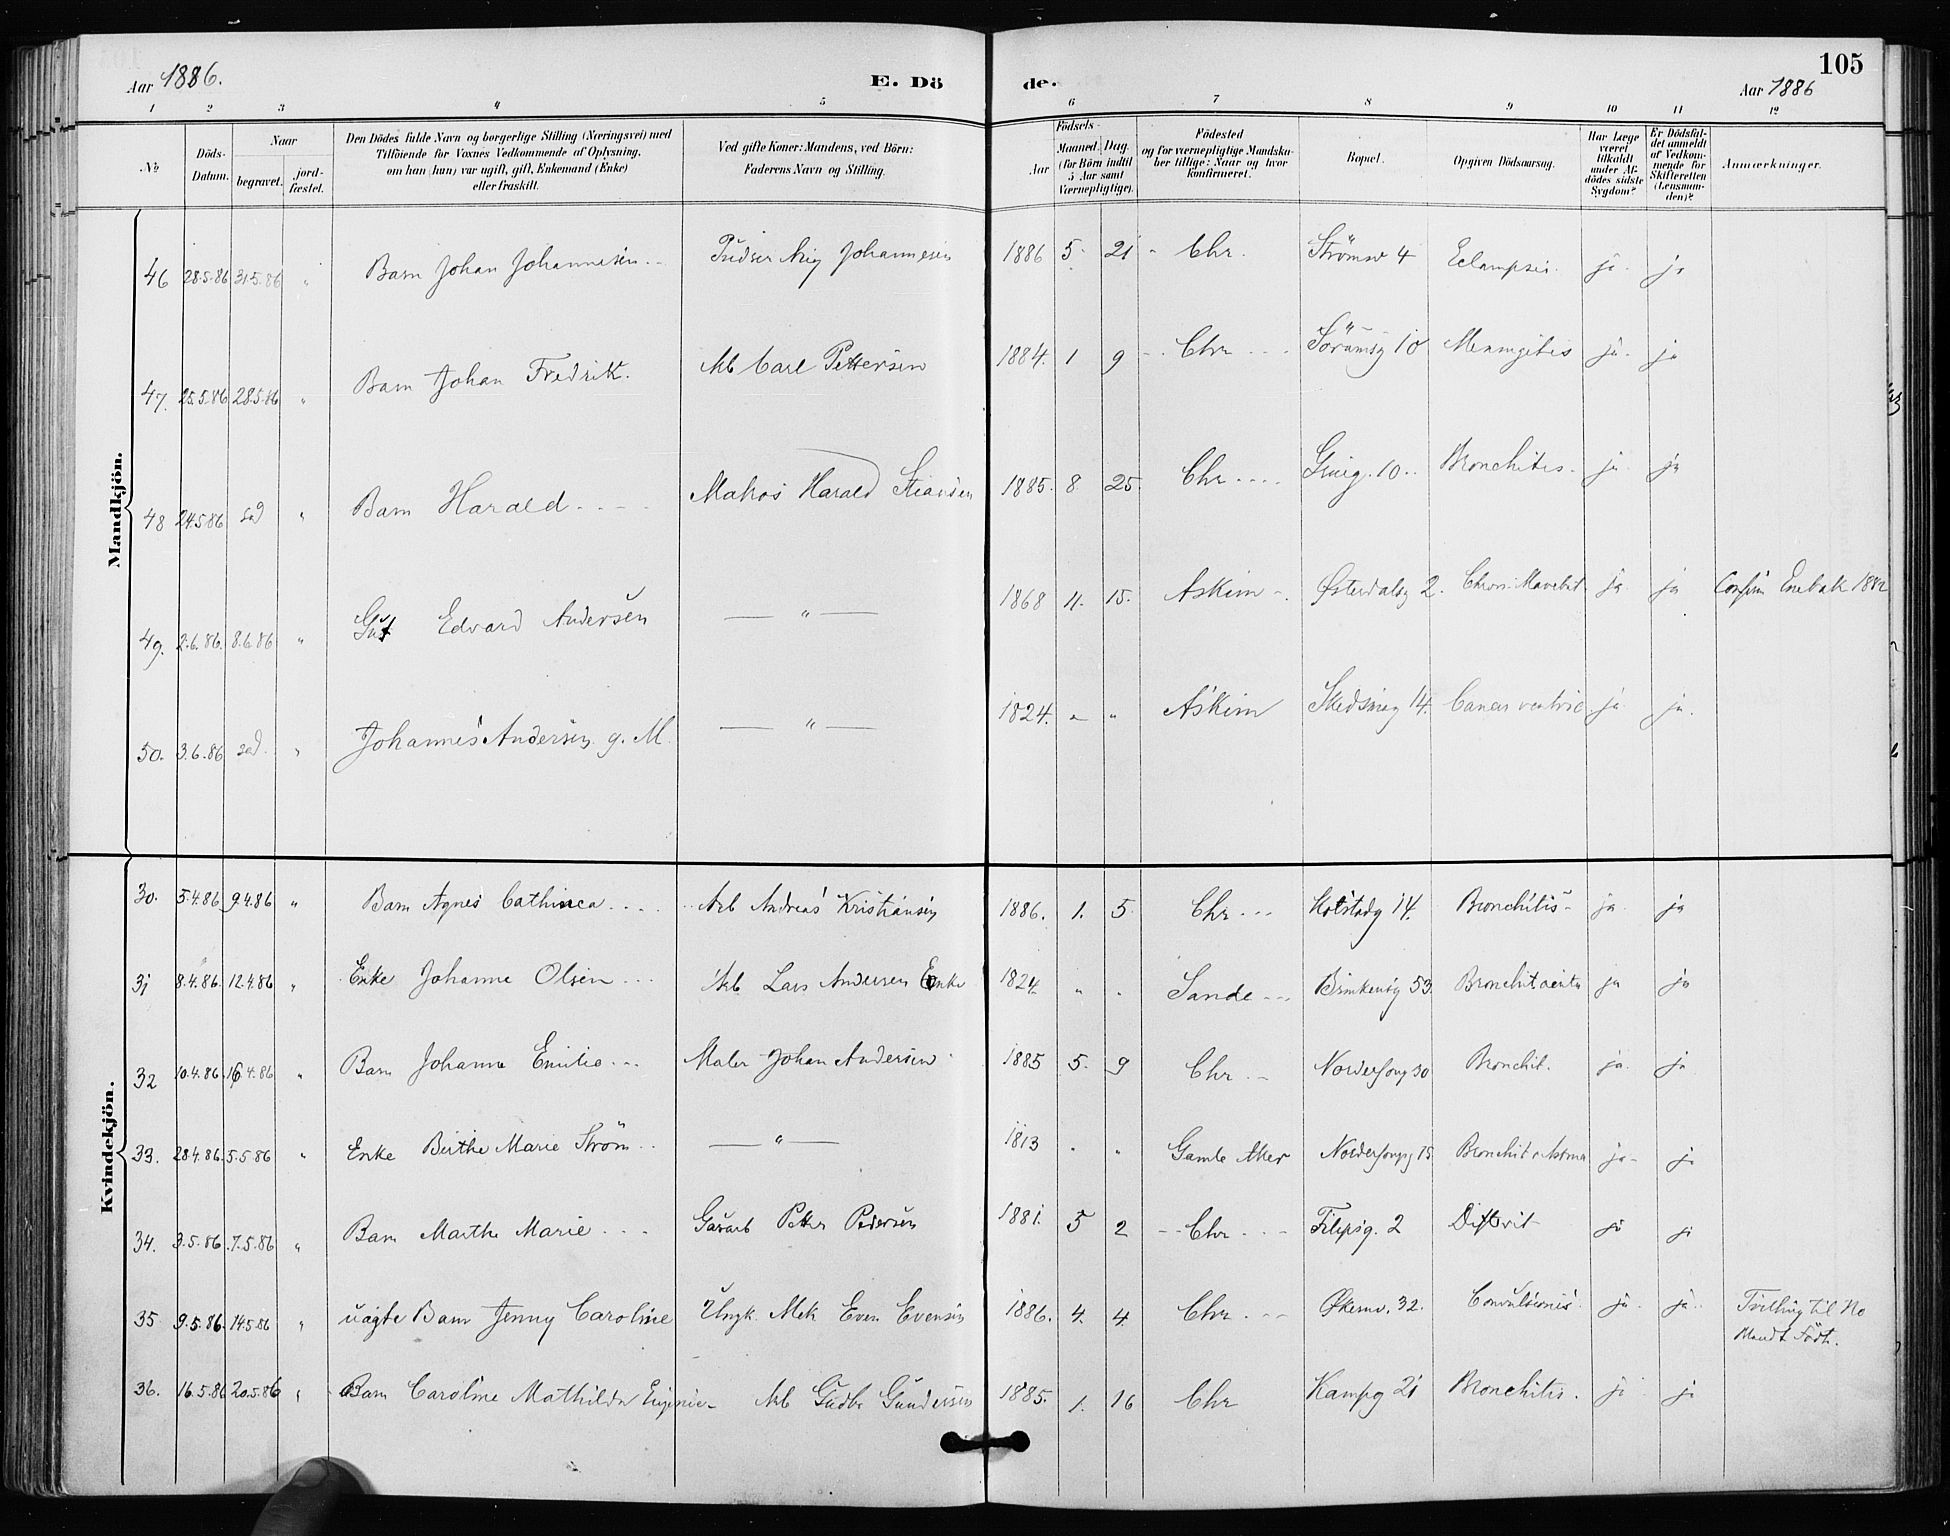 Aar 1886. E. Dö de. 105
Aar 1886
1 2 3 4 5 6 7 8 9 10 11 12
No Döds-Datum. Naar begravet. jordfæstet. Den Dödes fulde Navn og borgerlige Stilling (Næringsvei) med Tilföiende for Voxnes Vedkommende af Oplysning, om han (hun) var ugift, gift, Enkemand (Enke) eller fraskilt. Ved gifte Koner: Mandens, ved Börn: Faderens Navn og Stilling. Födsels- Aar Maaned. Dag. (for Börn indtil 5 Aar samt Værnepligtige). Födested og for værnepligtige Mandskaber tillige: Naar og hvor konfirmeret. Bopæl. Opgiven Dödsaarsag. Har Læge været tilkaldt under Afdödes sidste Sygdom? Er Dödsfaldet anmeldt af Vedkommende for Skifteretten (Lensmanden)? Anmærkninger.
Mandkjön.
46 28.5.86 31.5.86 " Barn Johan Johannesen Johannesen 1886 5. 21 Chr. Strömsv 4 Eclampsia. ja. ja
47. 25.5.86 28.5.86 " Barn Johan Fredrik. Arb Carl Pettersen 1884. 1 9 Chr Sörumsg 10 Meningitis ja. ja
48 24.5.86 sad " Barn Harald Matros Harald 1885. 8. 25. Chr 10 Bronchitis. ja. ja
49. 2.6.86. 8.6.86 " Edvard Andersen — " — 1868 11. 15. Askim Østerdalsg 2. Chron. ja. ja Enebak
50. 3.6.86 sad. " Johannes Andersen g. M. — " — 1824. " " Askim Skedsmog 14. Cancer ventric. ja. ja.
Kvindekjön.
30. 5.4.86 9.4.86 " Barn Agnes Cathinca Arb Andreas Kristiansen 1886. 1. 5. Chr Kolstadg 14. Bronchitis ja. ja
31 8.4.86. 12.4.86 " Enke Johanne Olsen Arb Lars Andersen Enke 1824. " " Sande Brinkensg 53. Bronchit acuta ja ja
32 10.4.86. 16.4.86 " Barn Johanne Emilie Maler Johan Andersen 1885 5. 9 Chr. Norderhovg 30 Bronchit. ja. ja
33. 28.4.86. 5.5.86 " Enke Birthe Marie Ström — " — 1813 " " Gamle Aker Norderhovg 15. Bronchit ja ja
34. 3.5.86. 7.5.86 " Barn Marthe Marie Petter Pedersen 1881. 5 2 Chr Filipsg. 2 Diftrit ja ja
35 9.5.86. 14.5.86 " uægte Barn Jenny Caroline Ungk. Mek Even Evensen 1886. 4. 4 Chr. Økernv. 32. Convulsiones. ja ja Tvilling til No
Mandk Födt.
36. 16.5.86 20.5.86 " Barn Caroline Mathilda Eugenie Arb Gudbr Gundersen 1885. 1. 16 Chr Kampg 21 Bronchitis. ja ja